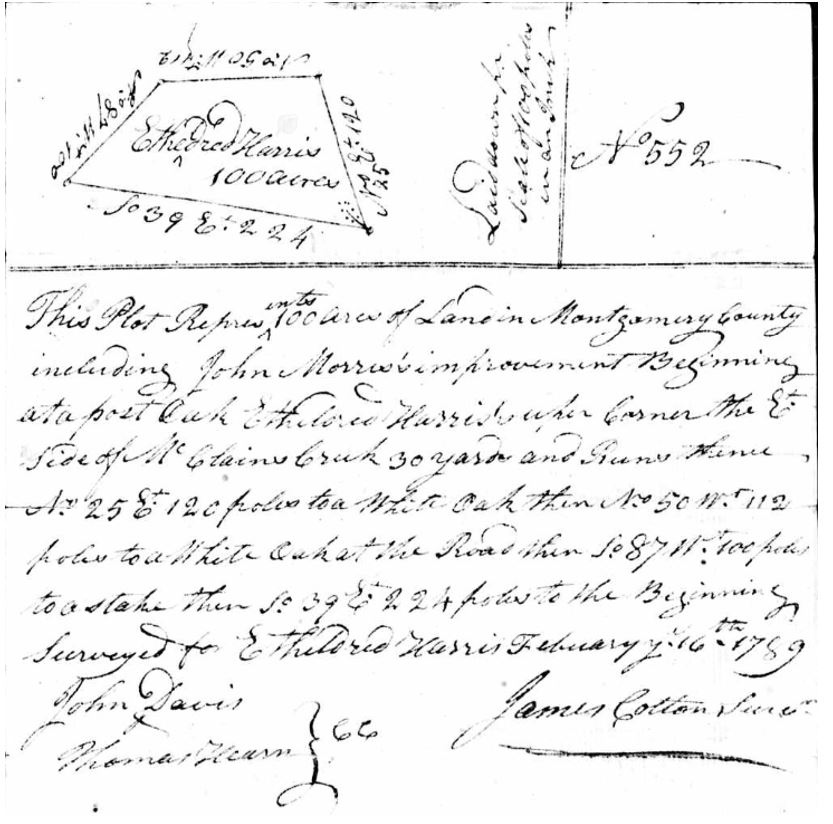 No 50 Wt 112
So 87 Wt 100
Etheldred Harris
100 acres
No 25 Et 120
So 39 Et 224
Laid down pr
Scale of 100 poles
in an Inch
No 552
This Plot Represents 100 acres of Land in Montgomery County
including John Morris's improvement Beginning
at a post Oak Etheldred Harris's upper Corner the Et
Side of Mc Clains Creek 30 yards and Runs thence
No 25 Et 120 poles to a White Oak then No 50 Wt 112
poles to a White Oak at the Road then So 87 Wt 100 poles
to a stake then So 39 Et 224 poles to the Beginning
Surveyed for Etheldred Harris Febuary ye 16th 1789
John Davis
Thomas Hearn } CC
James Cotton Survr